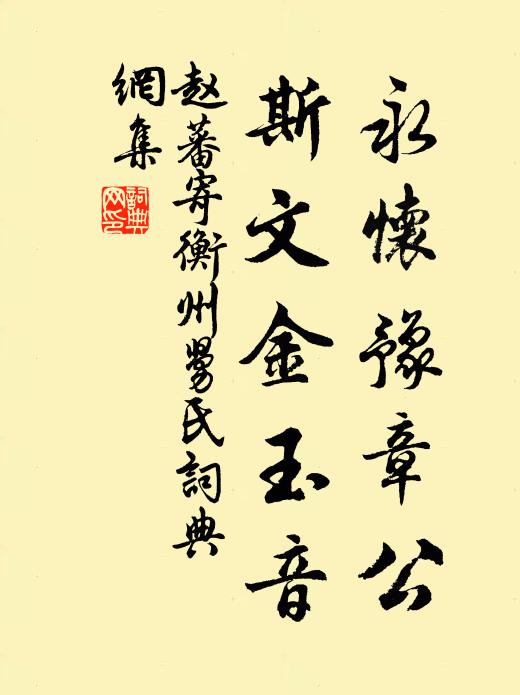 永懷豫章公
斯文金玉音
赵蕃寄衡州舅氏詞典
網集
詞典
网印